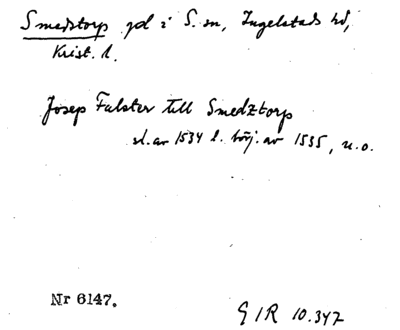 Smedstorp gd i S. sn, Ingelstads hd,
Krist. l.
Josep Falster till Smedztorp
sl. av 1534 l. börj. av 1535, u.o.
Nr 6147.
G I R 10.347